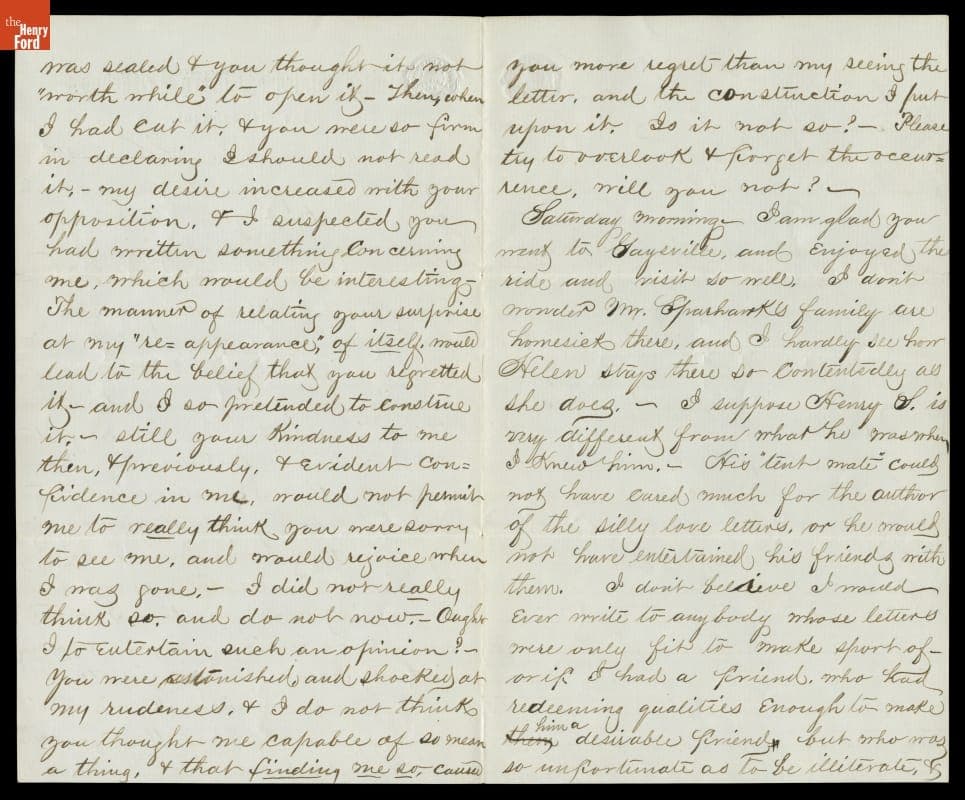 the
Henry
Ford
was sealed & you thought it not
"worth while" to open it - Then, when
I had cut it, & you were so firm
in declaring I should not read
it, - my desire increased with your
opposition, & I suspected you
had written something concerning
me, which would be interesting -
The manner of relating your surprise
at my "re= appearance," of itself, would
lead to the belief that you regretted
it - and I so pretended to construe
it. - still your kindness to me
then, & previously, & evident con=
fidence in me, would not permit
me to really think you were sorry
to see me, and would rejoice when
I was gone. - I did not really
think so, and do not now. - Ought
I to entertain such an opinion? -
You were astonished, and shocked at
my rudeness, & I do not think
you thought me capable of so mean
a thing, & that finding me so, caused
you more regret than my seeing the
letter, and the construction I put
upon it. Is it not so? - Please
try to overlook & forget the occur=
rence, will you not? -
Saturday morning - I am glad you
went to Gaysville, and enjoyed the
ride and visit so well. I don't
wonder Mr. Sparhawk's family are
homesick there, and I hardly see how
Helen stays there so contentedly as
she does. - I suppose Henry S. is
very different from what he was when
I knew him. - His "tent mate" could
not have cared much for the author
of the silly love letters, or he would
not have entertained his friends with
them. I don't believe I would
ever write to anybody whose letters
were only fit to make sport of -
or if I had a friend, who had
redeeming qualities enough to make
them him a desirable friend, but who was
so unfortunate as to be illiterate, &